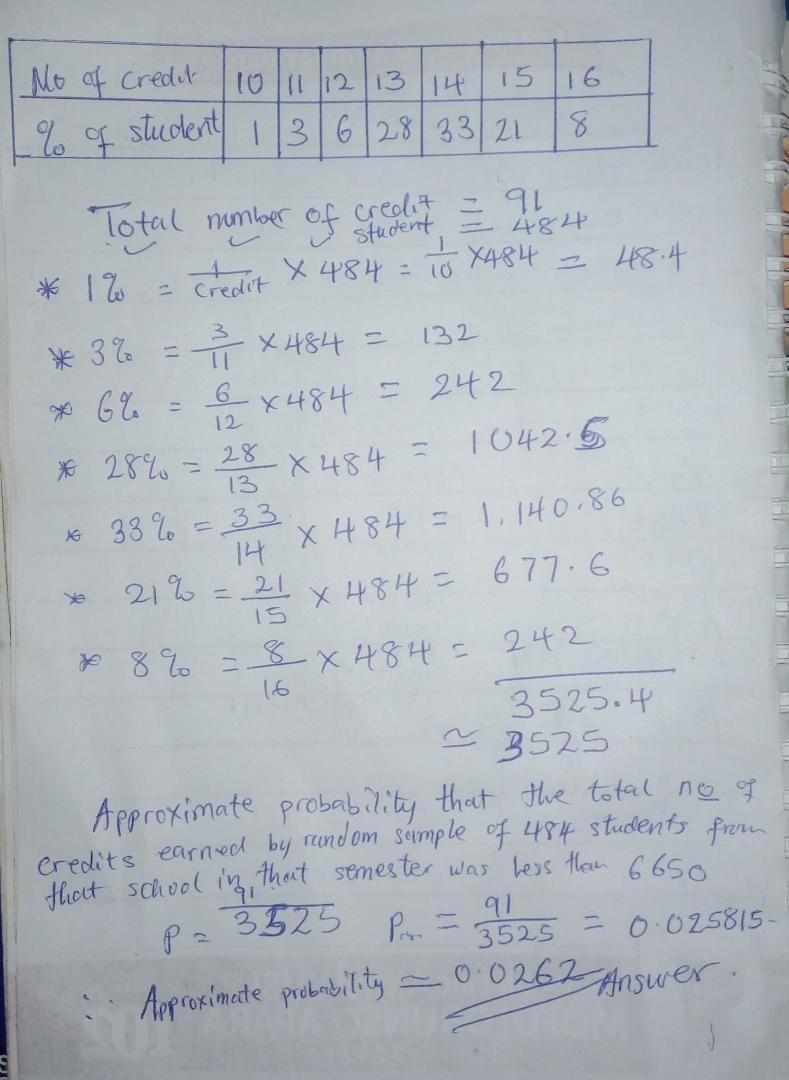 No of credit 10 11 12 13 14 15 16
% of student 1 3 6 28 33 21 8
Total number of credit = 91
student = 484
* 1% = 1/credit × 484 = 1/10 × 484 = 48.4
* 3% = 3/11 × 484 = 132
* 6% = 6/12 × 484 = 242
* 28% = 28/13 × 484 = 1042.5
* 33% = 33/14 × 484 = 1,140.86
* 21% = 21/15 × 484 = 677.6
* 8% = 8/16 × 484 = 242
3525.4
≃ 3525
Approximate probability that the total no of
credits earned by random sample of 484 students from
that school in that semester was less than 6650
P = 91/3525 P = 91/3525 = 0.025815-
∴ Approximate probability = 0.0262 Answer.